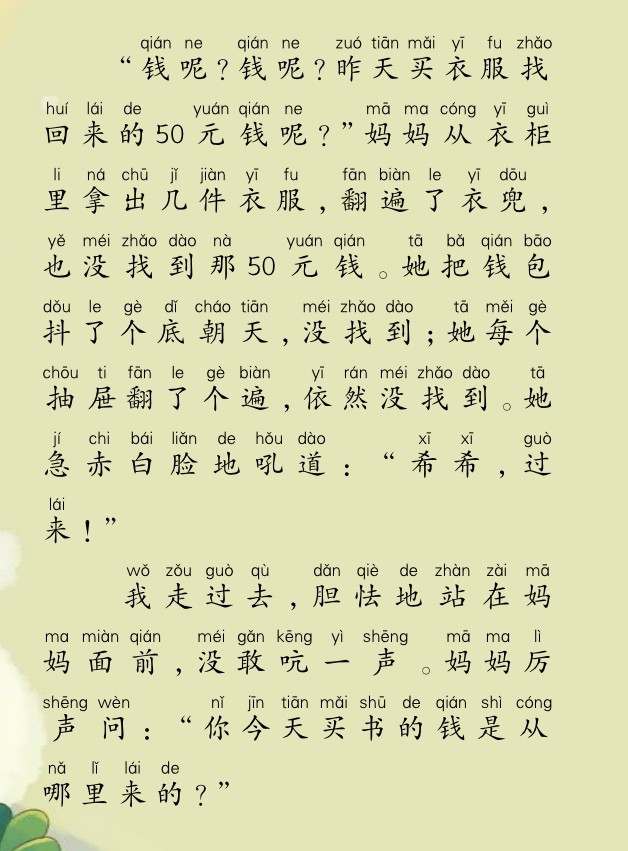 qián ne qián ne zuó tiān mǎi yī fu zhǎo
“钱呢？钱呢？昨天买衣服找
huí lái de yuán qián ne mā ma cóng yī guì
回来的50元钱呢？”妈妈从衣柜
li ná chū jǐ jiàn yī fu fān biàn le yī dōu
里拿出几件衣服，翻遍了衣兜，
yě méi zhǎo dào nà yuán qián tā bǎ qián bāo
也没找到那50元钱。她把钱包
dǒu le gè dǐ cháo tiān méi zhǎo dào tā měi gè
抖了个底朝天，没找到；她每个
chōu ti fān le gè biàn yī rán méi zhǎo dào tā
抽屉翻了个遍，依然没找到。她
jí chi bái liǎn de hǒu dào xī xī guò
急赤白脸地吼道：“希希，过
lái
来！”
wǒ zǒu guò qù dǎn qiè de zhàn zài mā
我走过去，胆怯地站在妈
ma miàn qián méi gǎn kēng yì shēng mā ma lì
妈面前，没敢吭一声。妈妈厉
shēng wèn nǐ jīn tiān mǎi shū de qián shì cóng
声问：“你今天买书的钱是从
nǎ lǐ lái de
哪里来的？”